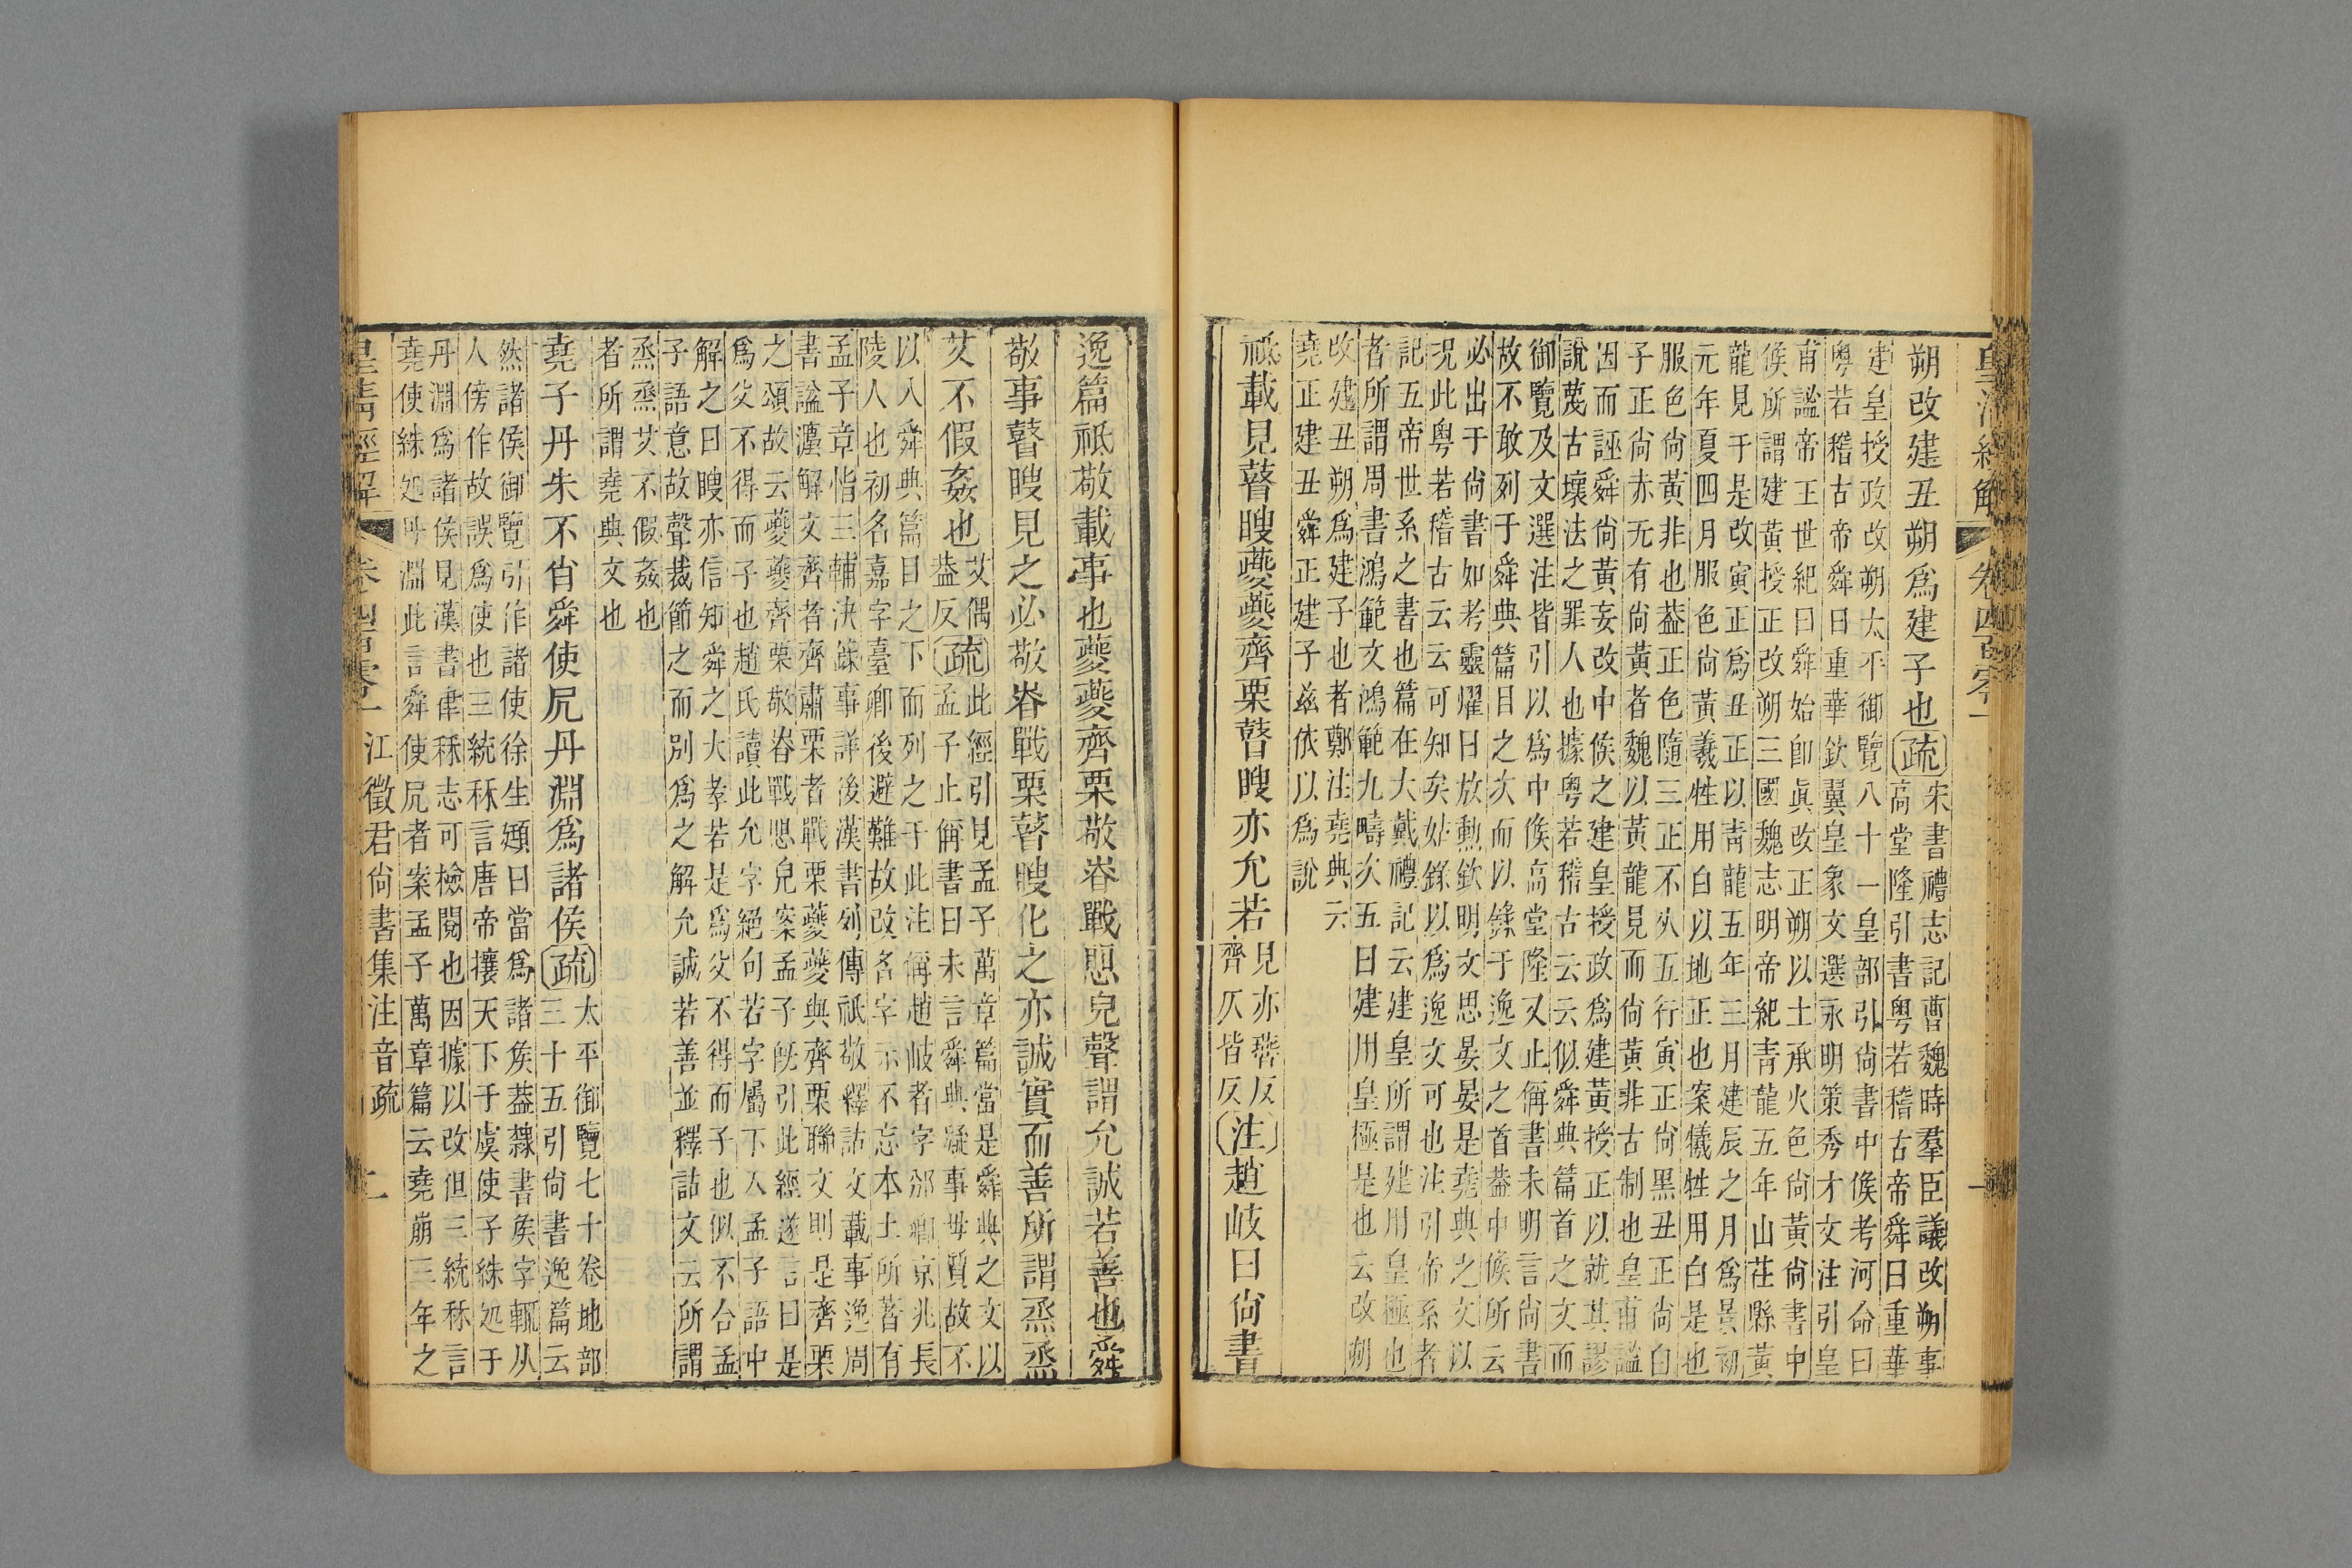 皇清經解
卷四百零一
朔改建丑朔爲建子也疏
宋書禮志記曹魏時羣臣議改朔事
高堂隆引書粵若稽古帝舜曰重華
建皇授政改朔太平御覽八十一皇部引尙書中候考河命曰
粵若稽古帝舜曰重華欽翼皇象文選永明策秀才文注引皇
甫謐帝王世紀曰舜始卽眞改正朔以土承火色尙黃尙書中
候所謂建黃授正改朔三國魏志明帝紀靑龍五年山茌縣黃
龍見于是改寅正爲丑正以靑龍五年三月建辰之月爲景初
元年夏四月服色尙黃羲牲用白以地正也案犧牲用白是也
服色尙黃非也葢正色隨三正不从五行寅正尙黑丑正尙白
子正尙赤无有尙黃者魏以黃龍見而尙黃非古制也皇甫謐
因而誣舜尙黃妄改中候之建皇授政爲建黃授正以就其謬
說蔑古壞法之罪人也據粵若稽古云云似舜典篇首之文而
御覽及文選注皆引以爲中候高堂隆又止偁書未明言尙書
故不敢列于舜典篇目之次而以錄于逸文之首葢中候所云
必出于尙書如考靈耀曰放勳欽明文思晏晏是堯典之文以
況此粵若稽古云云可知矣姑錄以爲逸文可也注引帝系者
記五帝世系之書也篇在大戴禮記云建皇所謂建用皇極也
者所謂周書鴻範文鴻範九疇次五曰建用皇極是也云改朔
改建丑朔爲建子也者鄭注堯典云
堯正建丑舜正建子兹依以爲說
祗載見瞽瞍夔夔齊栗瞽瞍亦允若
見亦琹反
齊仄皆反
注趙岐曰尙書
逸篇祗敬載事也夔夔齊栗敬昚戰思皃聲謂允誠若善也舜
敬事瞽瞍見之必敬昚戰栗瞽瞍化之亦誠實而善所謂烝烝
艾不假姦也
艾偶
葢反
疏
此經引見孟子萬章篇當是舜典之文以
孟子止偁書曰未言舜典凝事毋質故不
以入舜典篇目之下而列之于此注偁趙岐者字邠卿京兆長
陵人也初名嘉字臺卿後避難故改名字示不忘本土所著有
孟子章恉三輔決錄事詳後漢書列傳祇敬釋詁文載事逸周
書諡灋解文齊者齊肅栗者戰栗夔夔與齊栗聯文則是齊栗
之頌故云夔夔齊栗敬昚戰思皃案孟子旣引此經遂言曰是
爲父不得而子也趙氏讀此允字絕句若字屬下入孟子語中
解之曰瞍亦信知舜之大孝若是爲父不得而子也似不合孟
子語意故聲裁節之而別爲之解允誠若善並釋詁文云所謂
烝烝艾不假姦也
者所謂堯典文也
堯子丹朱不肖舜使凥丹淵爲諸侯疏
太平御覽七十卷地部
三十五引尙書逸篇云
然諸侯御覽引作諸使徐生頲曰當爲諸矦葢隸書矦字輒从
人傍作故誤爲使也三統秝言唐帝攘天下于虞使子絑処于
丹淵爲諸侯見漢書律秝志可檢閱也因據以改但三統秝言
堯使絑処丹淵此言舜使凥者案孟子萬章篇云堯崩三年之
皇淸經解
卷四百零一
江徵君尙書集注音疏
二